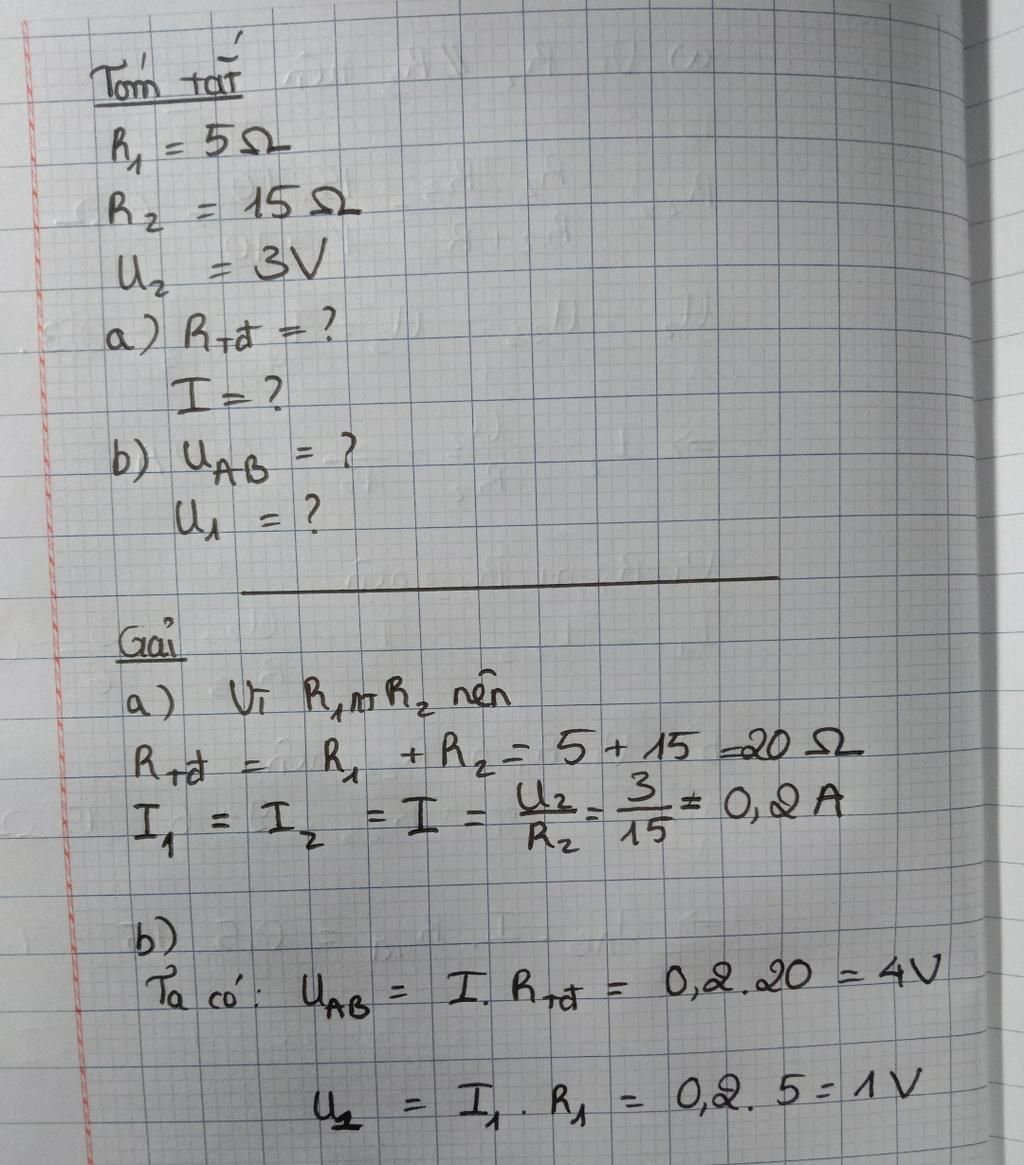 Tóm tắt
R₁ = 5Ω
R₂ = 15Ω
U₂ = 3V
a) Rtđ = ?
I = ?
b) UAB = ?
U₁ = ?
Gải
a) Vì R₁ nt R₂ nên
Rtđ = R₁ + R₂ = 5 + 15 = 20 Ω
I₁ = I₂ = I = U₂/R₂ = 3/15 = 0,2A
b)
Ta có: UAB = I. Rtđ = 0,2.20 = 4V
U₁ = I₁. R₁ = 0,2. 5 = 1V